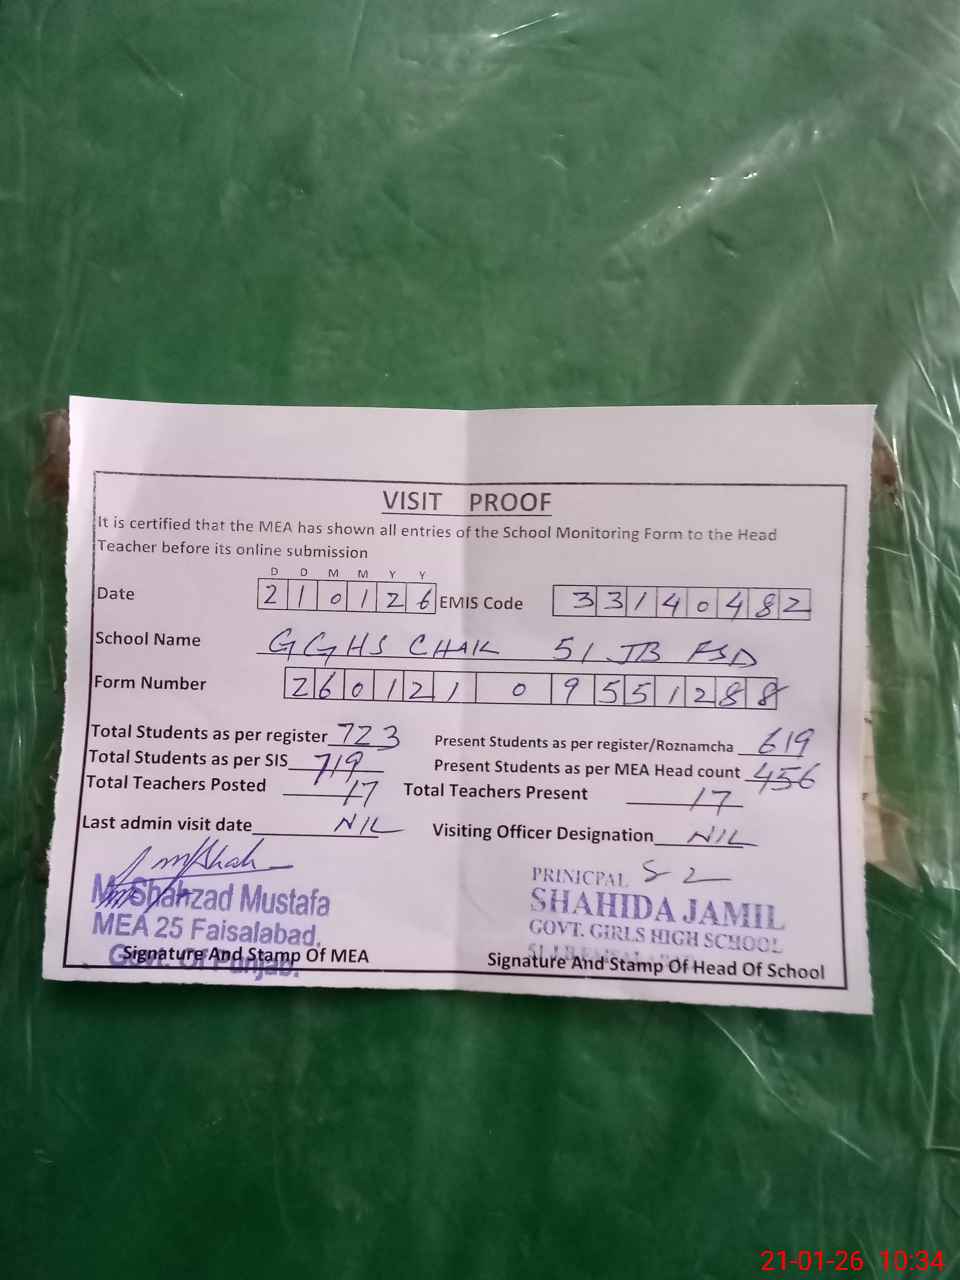 VISIT PROOF
It is certified that the MEA has shown all entries of the School Monitoring Form to the Head
Teacher before its online submission
D D M M Y Y
Date 210126 EMIS Code 33140482
School Name GGHS CHAK 51 JB FSD
Form Number 260121 0 9551288
Total Students as per register 723 Present Students as per register/Roznamcha 619
Total Students as per SIS 719 Present Students as per MEA Head count 456
Total Teachers Posted 17 Total Teachers Present 17
Last admin visit date NIL Visiting Officer Designation NIL
M. Shahzad Mustafa
MEA 25 Faisalabad.
Govt. Of Punjab.
Signature And Stamp Of MEA
PRINICPAL
SHAHIDA JAMIL
GOVT. GIRLS HIGH SCHOOL
Signature And Stamp Of Head Of School
21-01-26 10:34